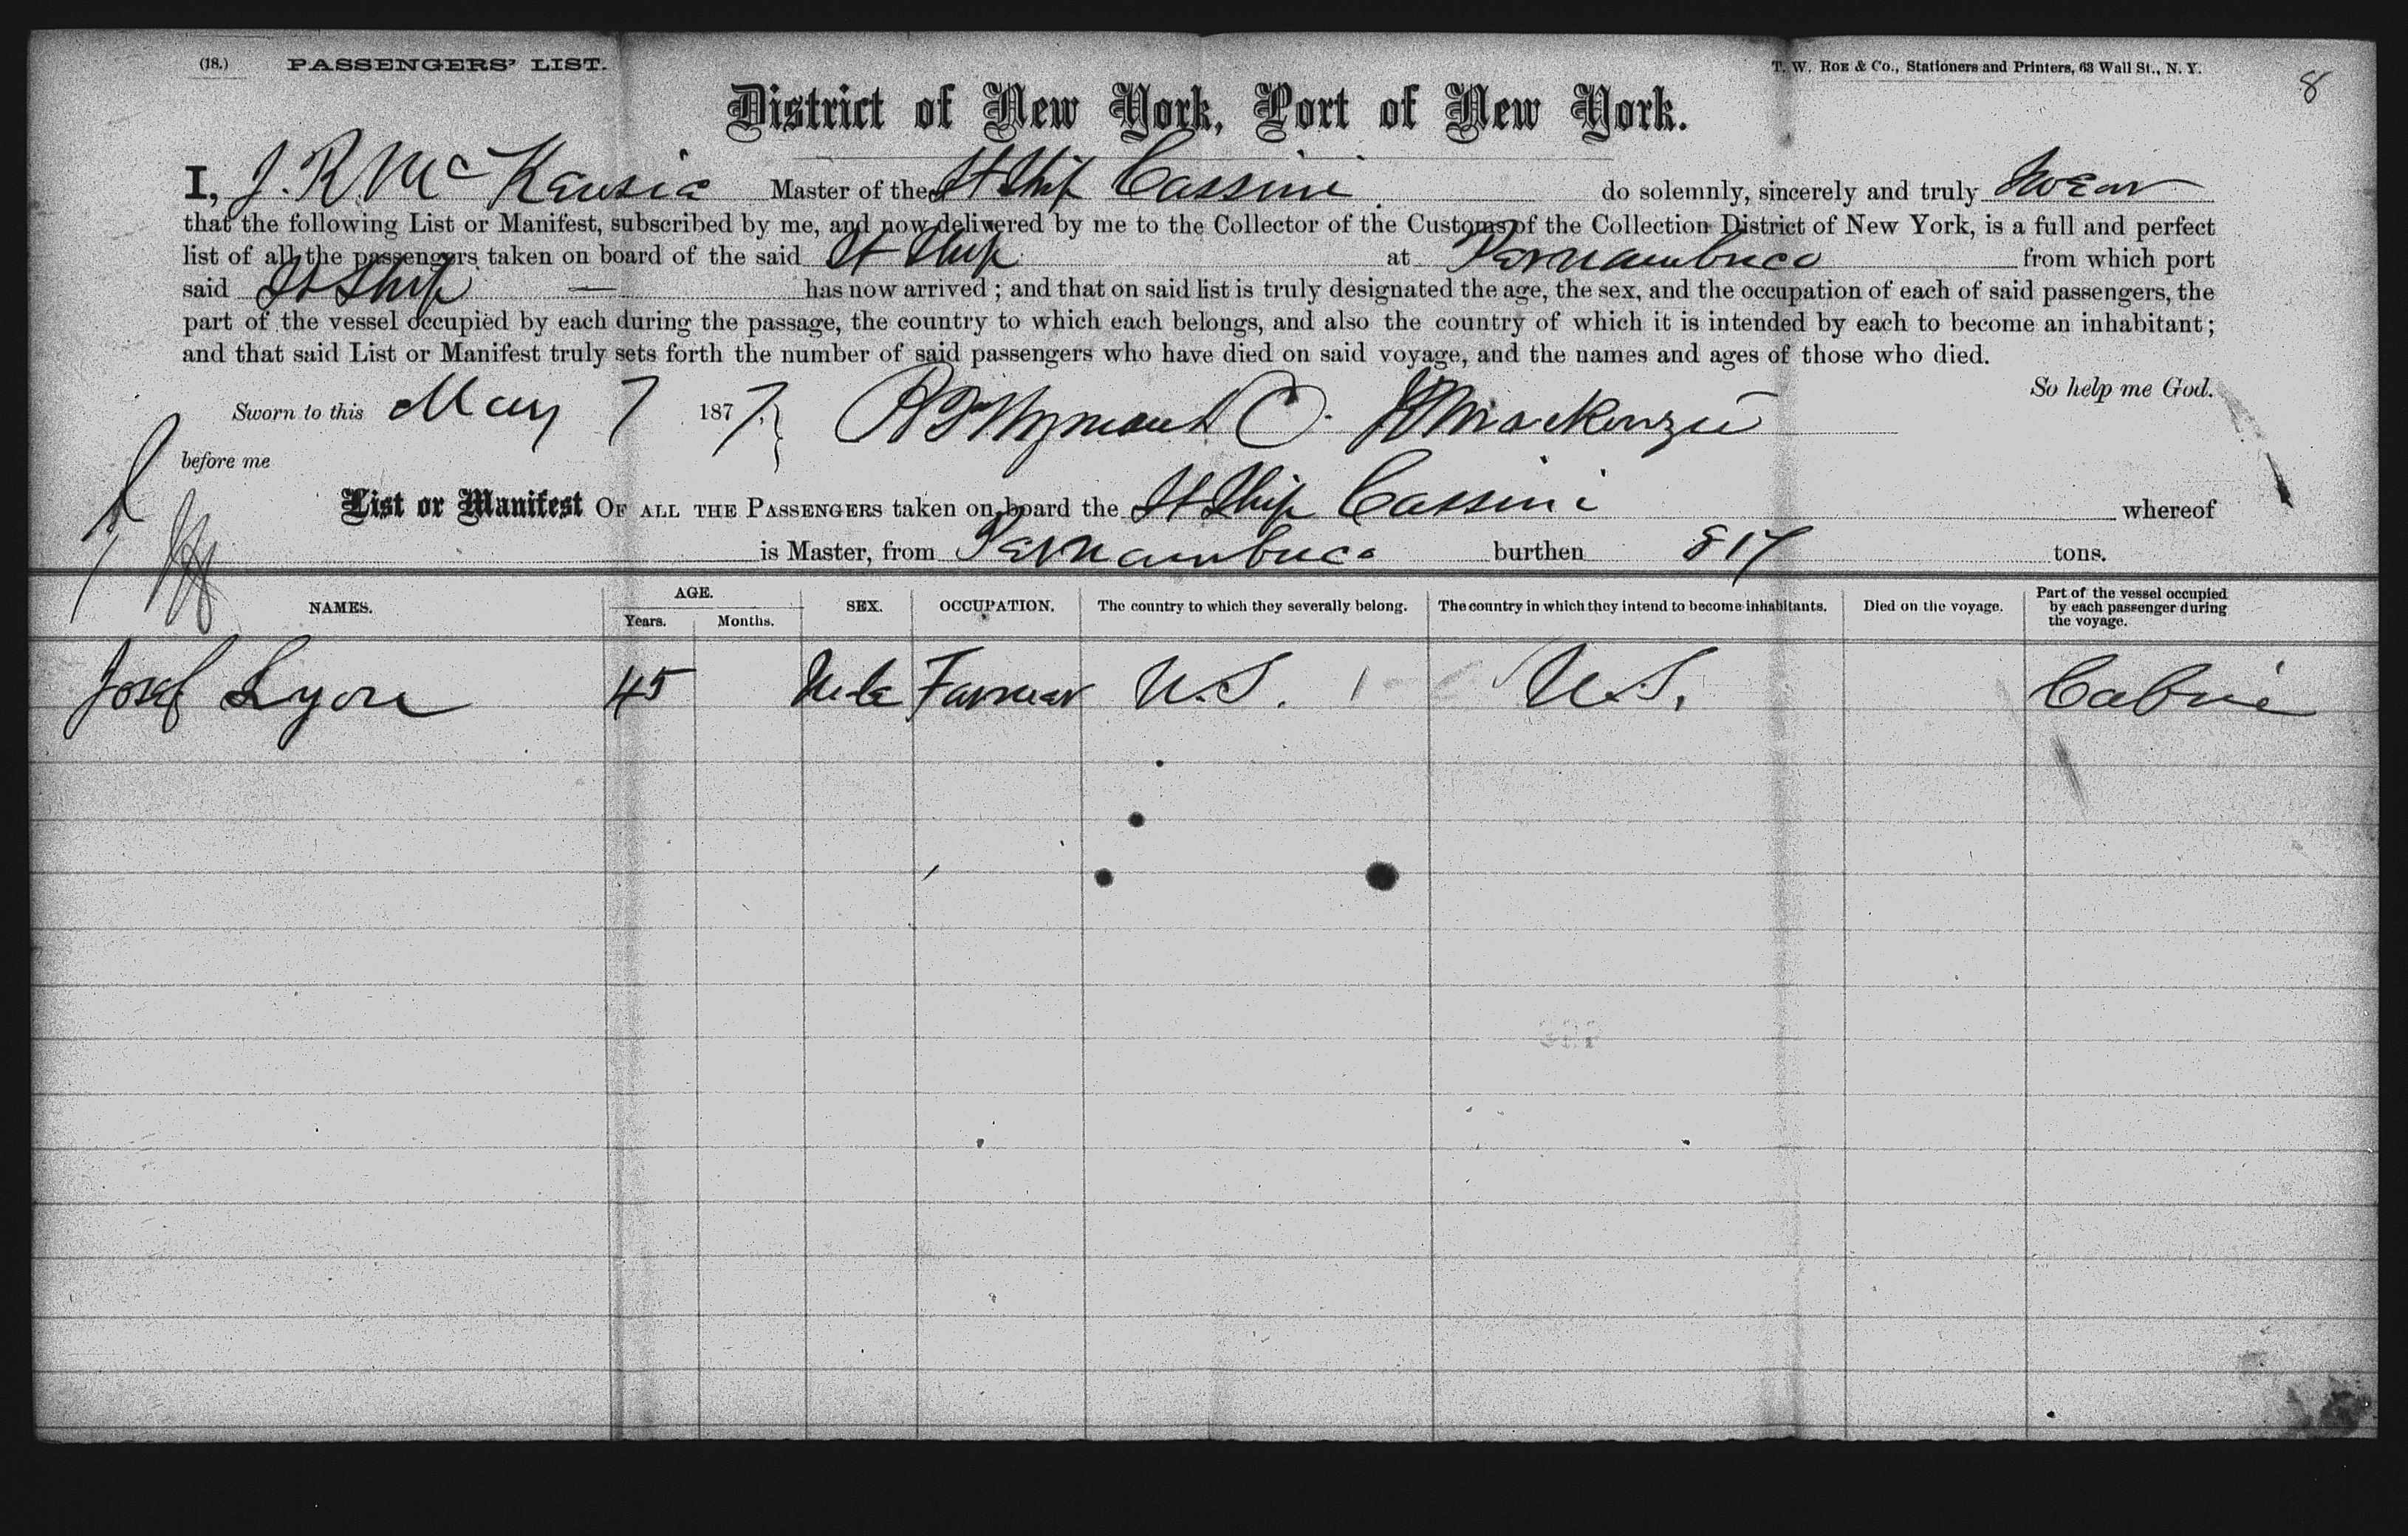 (18.) PASSENGERS' LIST. T. W. ROE & Co., Stationers and Printers, 63 Wall St., N. Y. 8
District of New York, Port of New York.
I, J. R. McKensie Master of the St Ship Cassini do solemnly, sincerely and truly swear
that the following List or Manifest, subscribed by me, and now delivered by me to the Collector of the Customs of the Collection District of New York, is a full and perfect
list of all the passengers taken on board of the said St Ship at Pernambuco from which port
said St Ship — has now arrived ; and that on said list is truly designated the age, the sex, and the occupation of each of said passengers, the
part of the vessel occupied by each during the passage, the country to which each belongs, and also the country of which it is intended by each to become an inhabitant ;
and that said List or Manifest truly sets forth the number of said passengers who have died on said voyage, and the names and ages of those who died.
So help me God.
Sworn to this May 7 1877. J R Mackenzie
before me
List or Manifest OF ALL THE PASSENGERS taken on board the St Ship Cassini whereof
is Master, from Pernambuco burthen 817 tons.
NAMES. AGE. Years. Months. SEX. OCCUPATION. The country to which they severally belong. The country in which they intend to become inhabitants. Died on the voyage. Part of the vessel occupied by each passenger during the voyage.
Josef Lyon 45 Male Farmer U.S. 1 U.S. Cabin